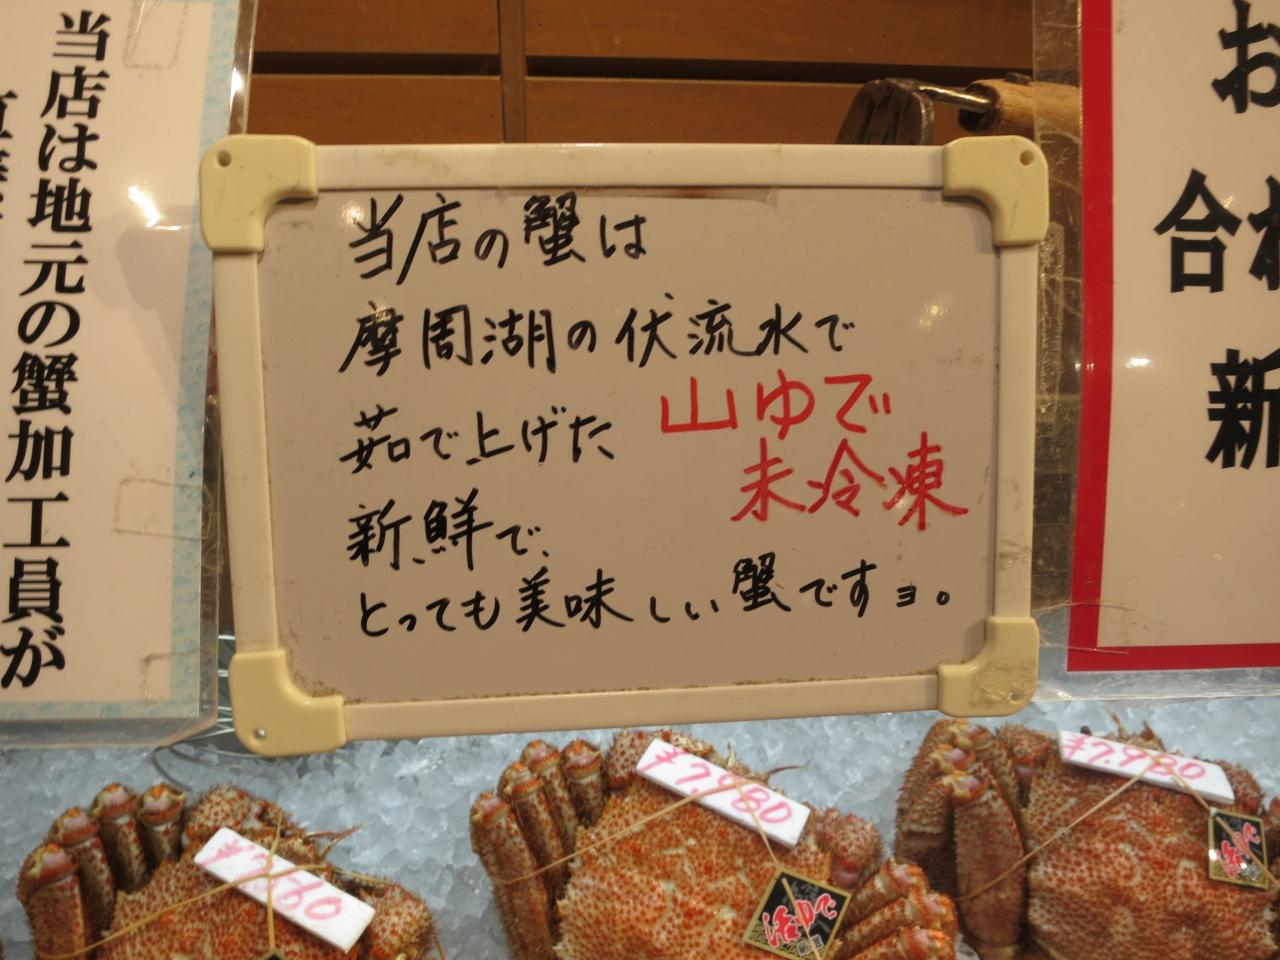 当店は地元の蟹加工員が
当店の蟹は
摩周湖の伏流水で
茹で上げた
山ゆで
未冷凍
新鮮で、
とっても美味しい蟹ですョ。
お
合格
新
¥7,980
¥7,980
浜ゆで